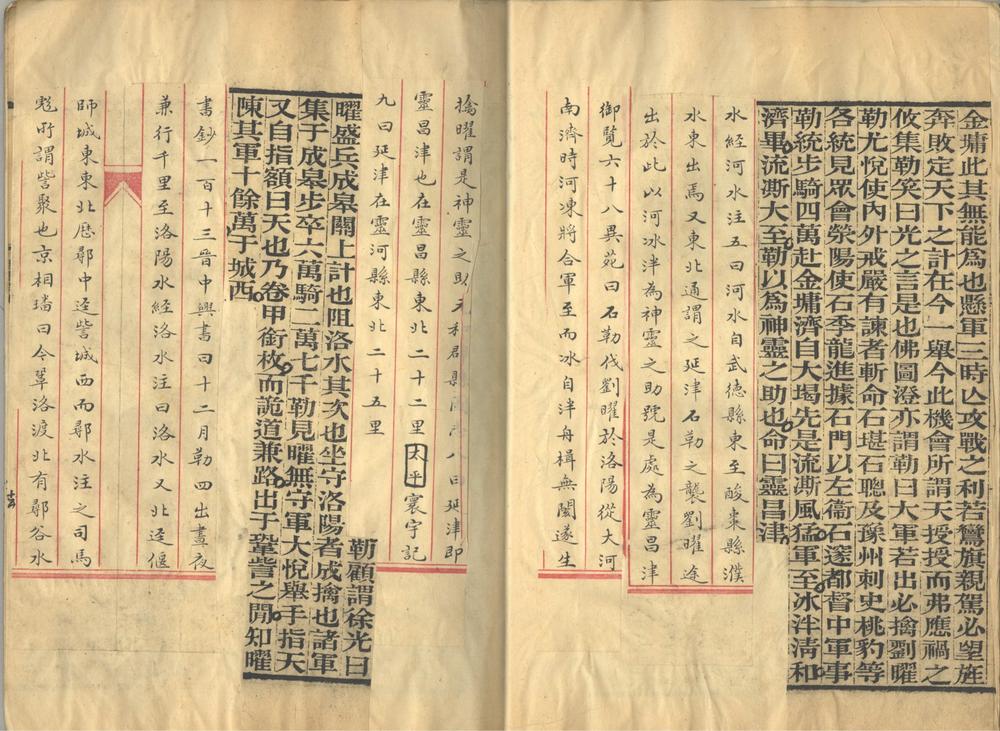 金墉此其無能為也懸軍三時亡攻戰之利若鸞旗親駕必望旌
奔敗定天下之計在今一舉今此機會所謂天授授而弗應禍之
攸集勒笑曰光之言是也佛圖澄亦謂勒曰大軍若出必擒劉曜
勒尤悅使內外戒嚴有諫者斬命石堪石聰及豫州刺史桃豹等
各統見眾會滎陽使石季龍進據石門以左衞石邃都督中軍事
勒統步騎四萬赴金墉濟自大堨先是流澌風猛軍至冰泮清和
濟畢流澌大至勒以為神靈之助也命曰靈昌津
水經河水注五曰河水自武德縣東至酸棗縣濮
水東出焉又東北通謂之延津石勒之襲劉曜途
出於此以河冰泮為神靈之助號是處為靈昌津
御覽六十八異苑曰石勒伐劉曜於洛陽從大河
南濟時河凍將合軍至而冰自泮舟楫無闕遂生
擒曜謂是神靈之助元和郡縣八曰延津即
靈昌津也在靈昌縣東北二十二里太平寰宇記
九曰延津在靈河縣東北二十五里
勒顧謂徐光曰
曜盛兵成皋關上計也阻洛水其次也坐守洛陽者成擒也諸軍
集于成皋步卒六萬騎二萬七千勒見曜無守軍大悅舉手指天
又自指額曰天也乃卷甲銜枚而詭道兼路出于鞏訾之間知曜
陳其軍十餘萬于城西
書鈔一百十三晉中興書曰十二月勒四出晝夜
兼行千里至洛陽水經洛水注曰洛水又北逕偃
師城東東北歷鄩中逕訾城西而鄩水注之司馬
彪所謂訾聚也京相璠曰今鞏洛渡北有鄩谷水